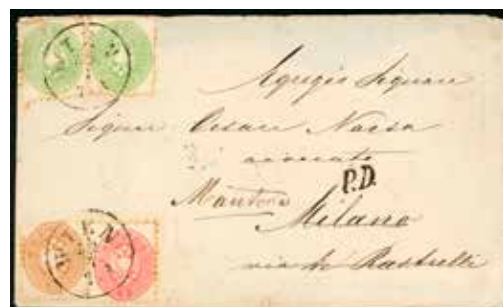 WIEN
Egregio Signore
Signor Cesare Nassa
avvocato
P.D.
Milano
via de Rastrelli
WIEN